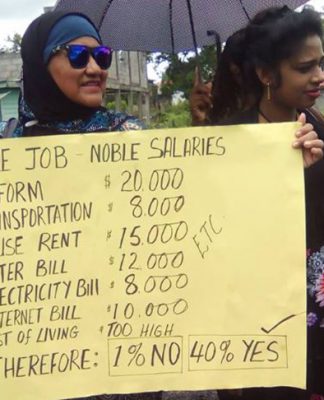 E JOB - NOBLE SALARIES
FORM $ 20.000
NSPORTATION $ 8.000
USE RENT $ 15.000
TER BILL $ 12.000
ECTRICITY Bill $ 8.000
TERNET BILL $ 10.000
ST OF LIVING $ TOO HIGH
ETC
THEREFORE: 1% NO 40% YES